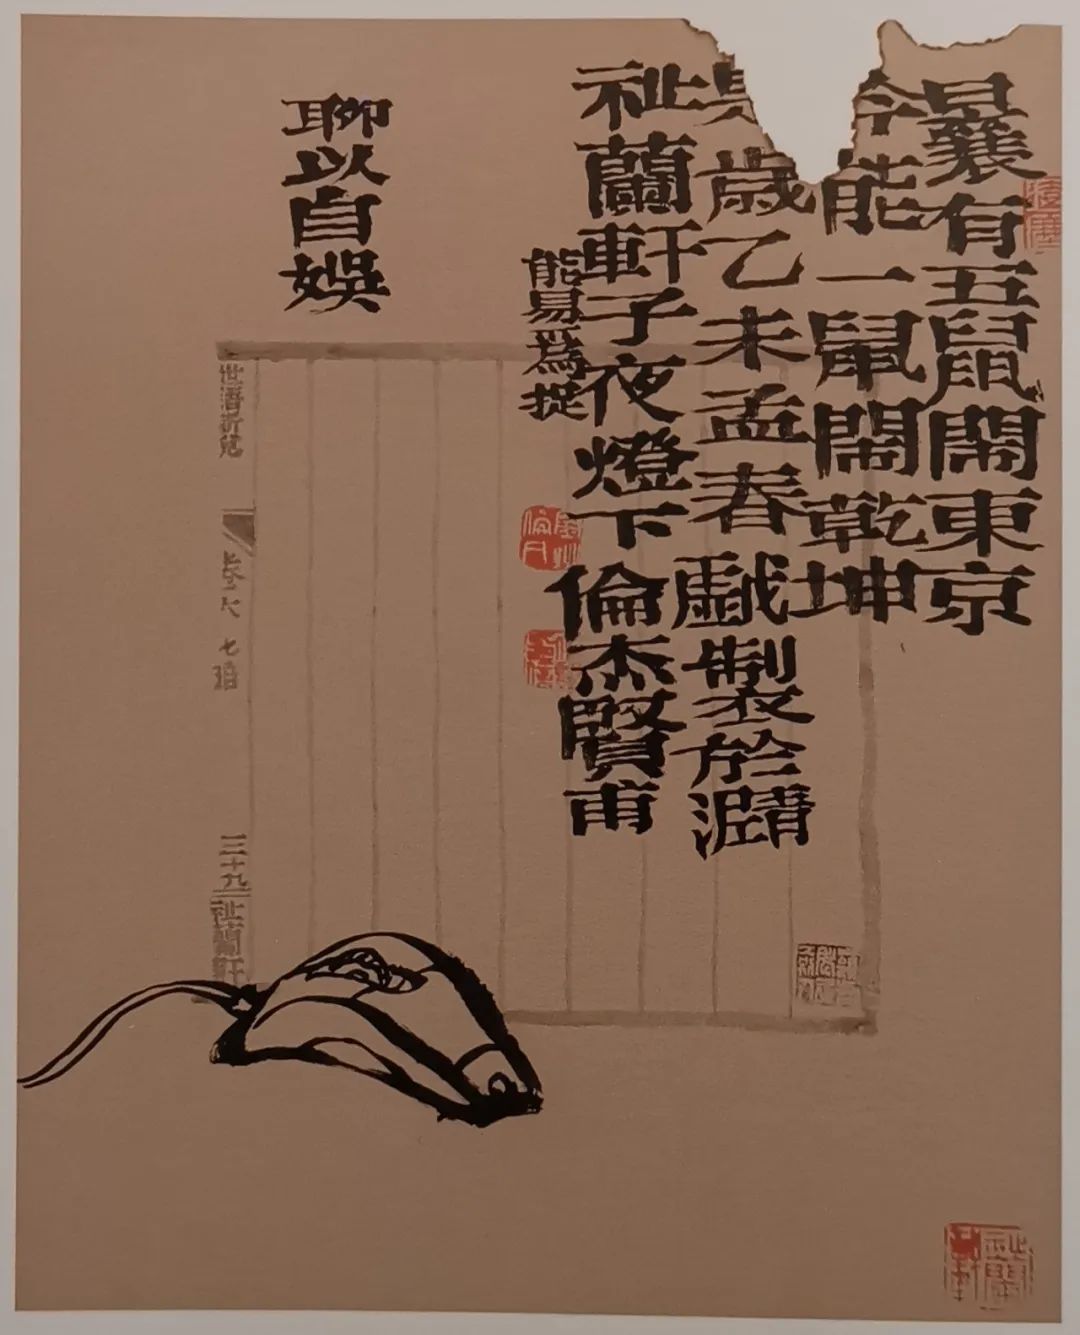 曩有五鼠鬧東京
今能一鼠鬧乾坤
是歲乙未孟春戲製於
祉蘭軒子夜燈下倫杰賢甫
能易為捉
聊以自娛
三十九
祉蘭軒